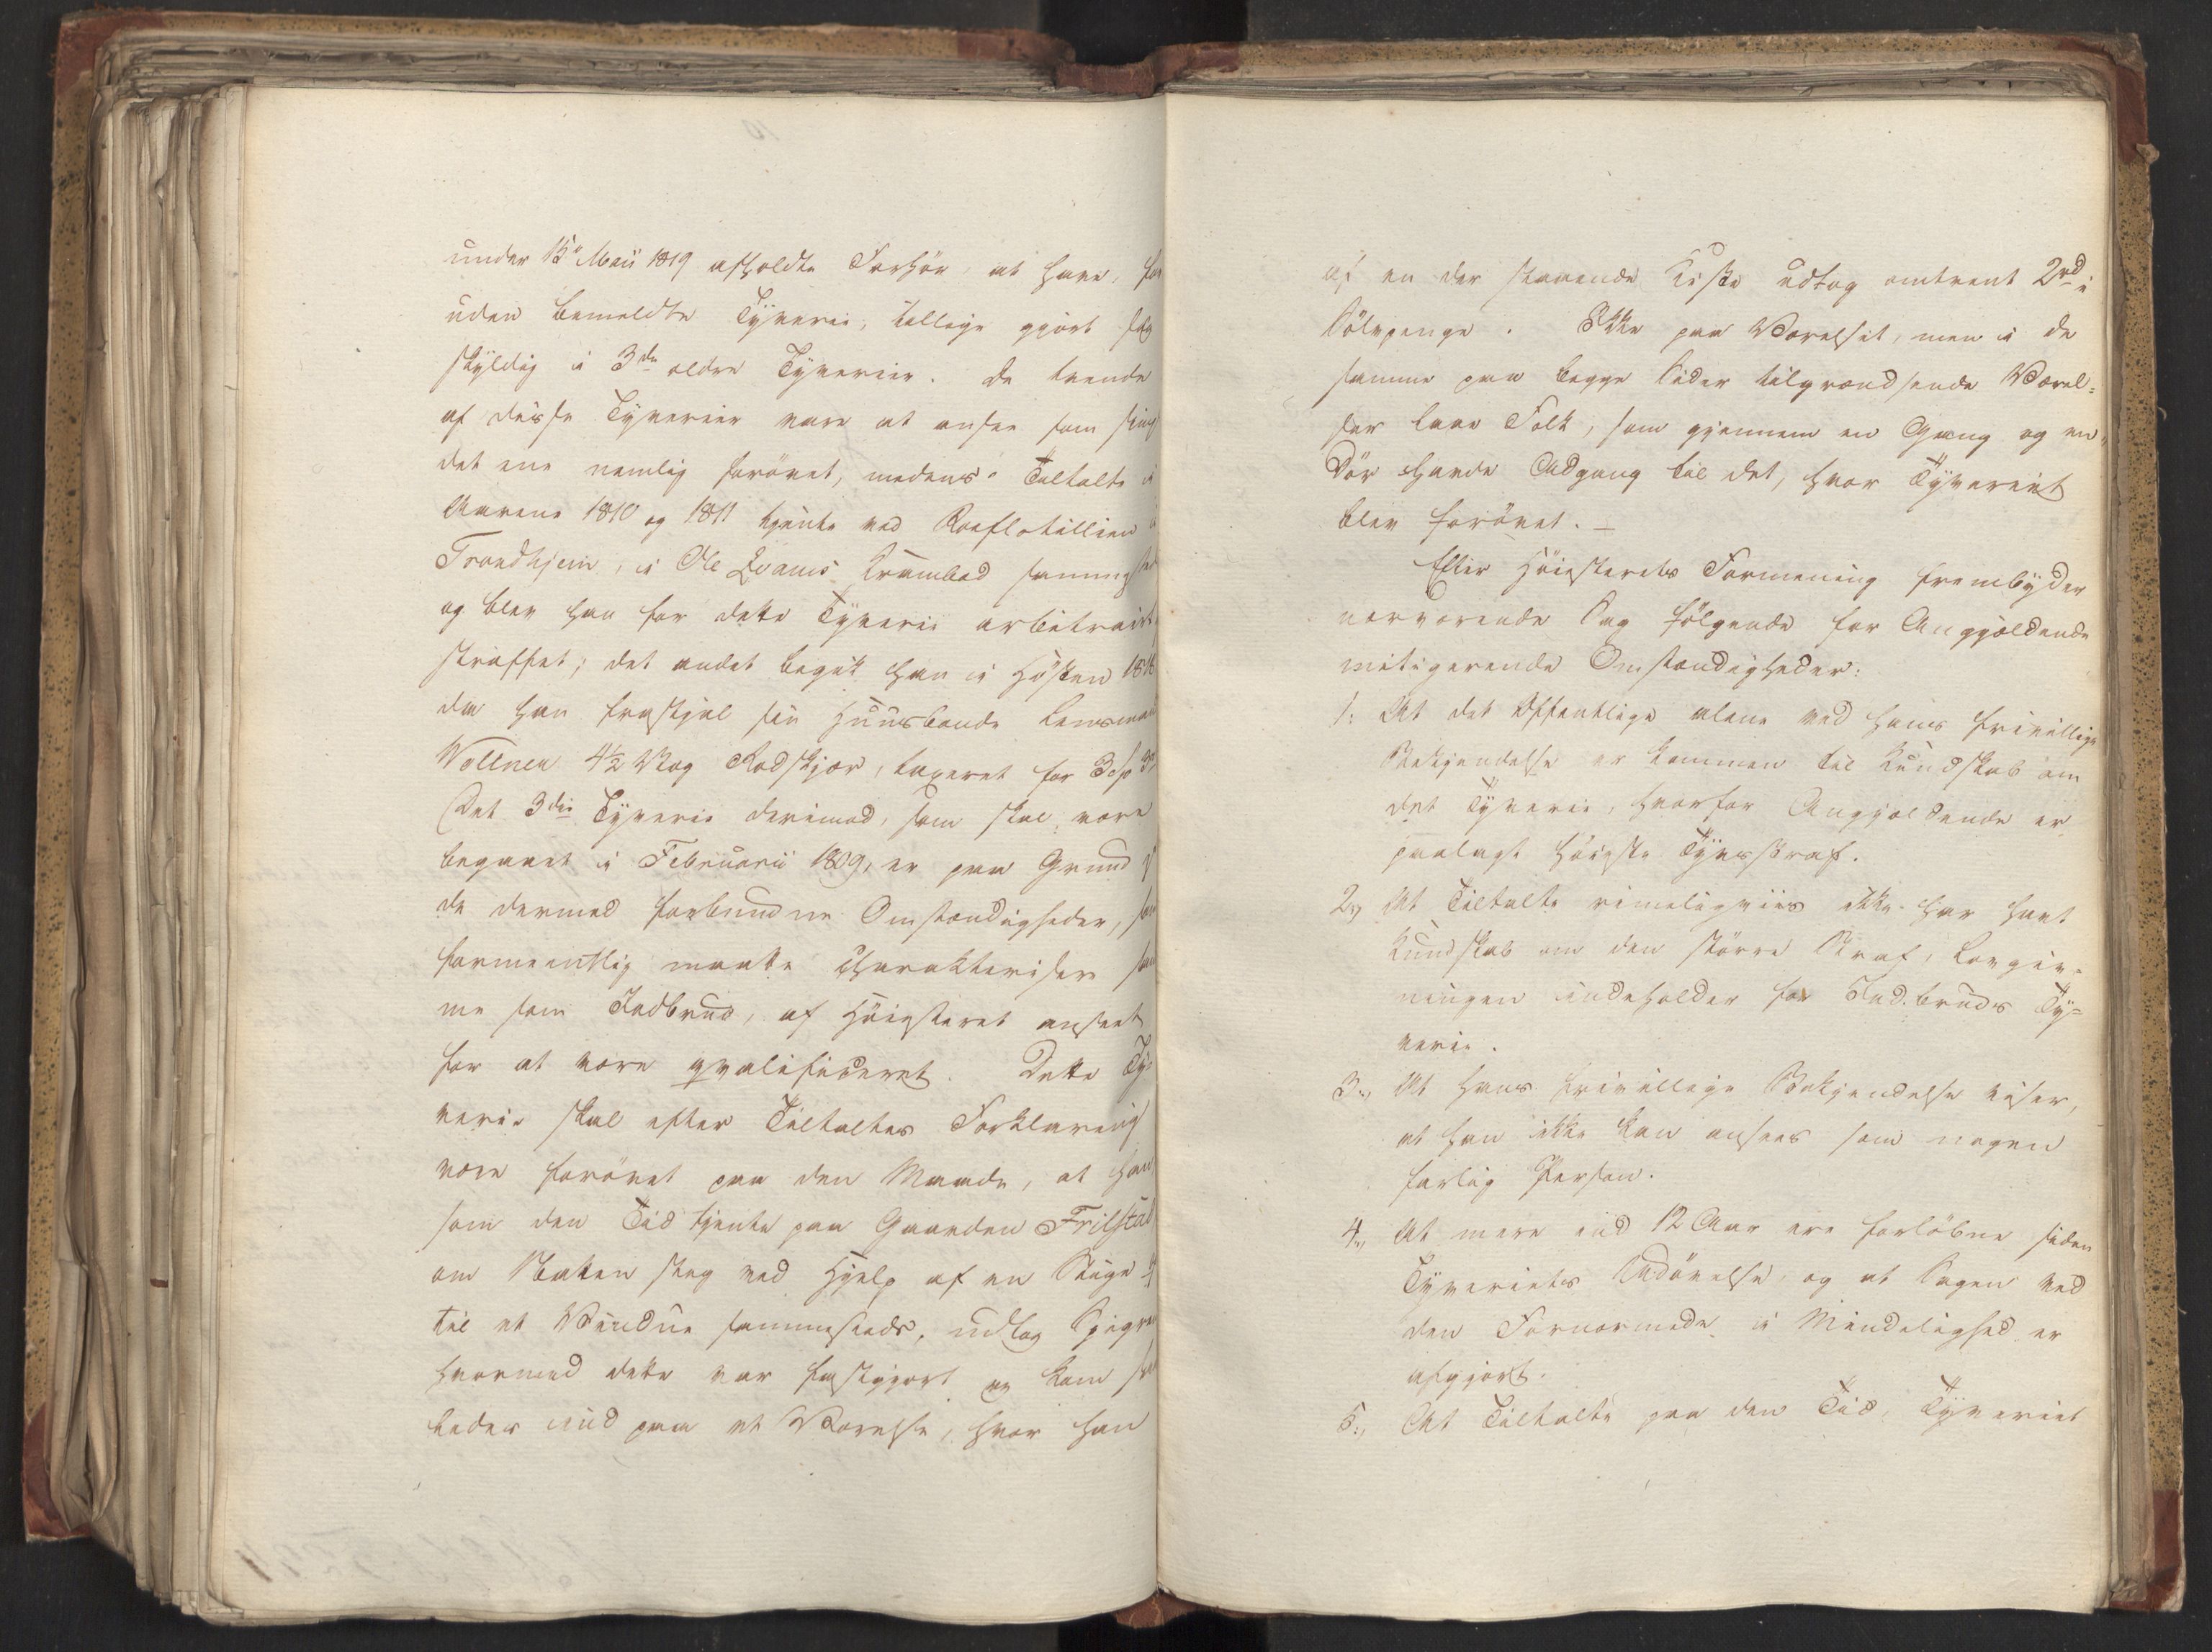 under 15de Maii 1819 afholdte Forhör, at have, for
uden bemeldte Tyverie, tillige gjort sig
skyldig i 3de ældre Tyverier. De tvende
af disse Tyverier vare at ansee som simp
det ene nemlig forövet, medens Tiltalte i
Aarene 1810 og 1811 tjente ved Roeflotillien i
Trondhjem, i Ole Qvams Krambod sammesteds
og blev han for dette Tyverie arbitrairt
straffet; det andet begik han i Hösten 1818
da han frastjal sin Huusbonde Lensmand
Vollnen 4½ Vog Rodskjær, taxeret for 3 Sp
Det 3die Tyverie derimod, som skal være
begaaet i Februarii 1809, er paa Grund af
de dermed forbundne Omstændigheder, som
formeentlig maatte characterisere sam
me som Indbrud, af Höiesteret anseet
for at være qvalificeret. Dette Ty-
verie skal efter Tiltaltes Forklaring
være forövet paa den Maade, at han
som den Tid tjente paa Gaarden Frilstad
om Natten steg ved Hjelp af en Stige op
til et Vindue sammesteds, udtog Spigrene
hvormed dette var fastgjort og kom saa-
ledes ind paa et Værelse, hvor han
af en der staaende Kiste udtog omtrent 2rd i
Sölvpenge. Ikke paa Værelset, men i de
samme paa begge Sider tilgrændsende Værel-
ser laae Folk, som gjennem en Gang og en
Dör havde Adgang til det, hvor Tyveriet
blev forövet. —
Efter Höiesterets Formening frembyder
nærværende Sag fölgende for Angjældende
mitigerende Omstændigheder:
1: At det Offentlige alene ved hans frivillige
Bekjendelse er kommen til Kundskab om
det Tyverie, hvorfor Angjældende er
paalagt höieste Tyvsstraf.
2, At Tiltalte rimeligviis ikke har havt
Kundskab om den större Straf, Lovgiv-
ningen indeholder for Indbruds Ty-
verie.
3., At hans frivillige Bekjendelse viser,
at han ikke kan ansees som nogen
farlig Person.
4., At mere end 12 Aar ere forlöbne siden
Tyveriets Udövelse, og at Sagen ved
den Fornærmede i Mindelighed er
afgjort.
5., At Tiltalte paa den Tid, Tyveriet